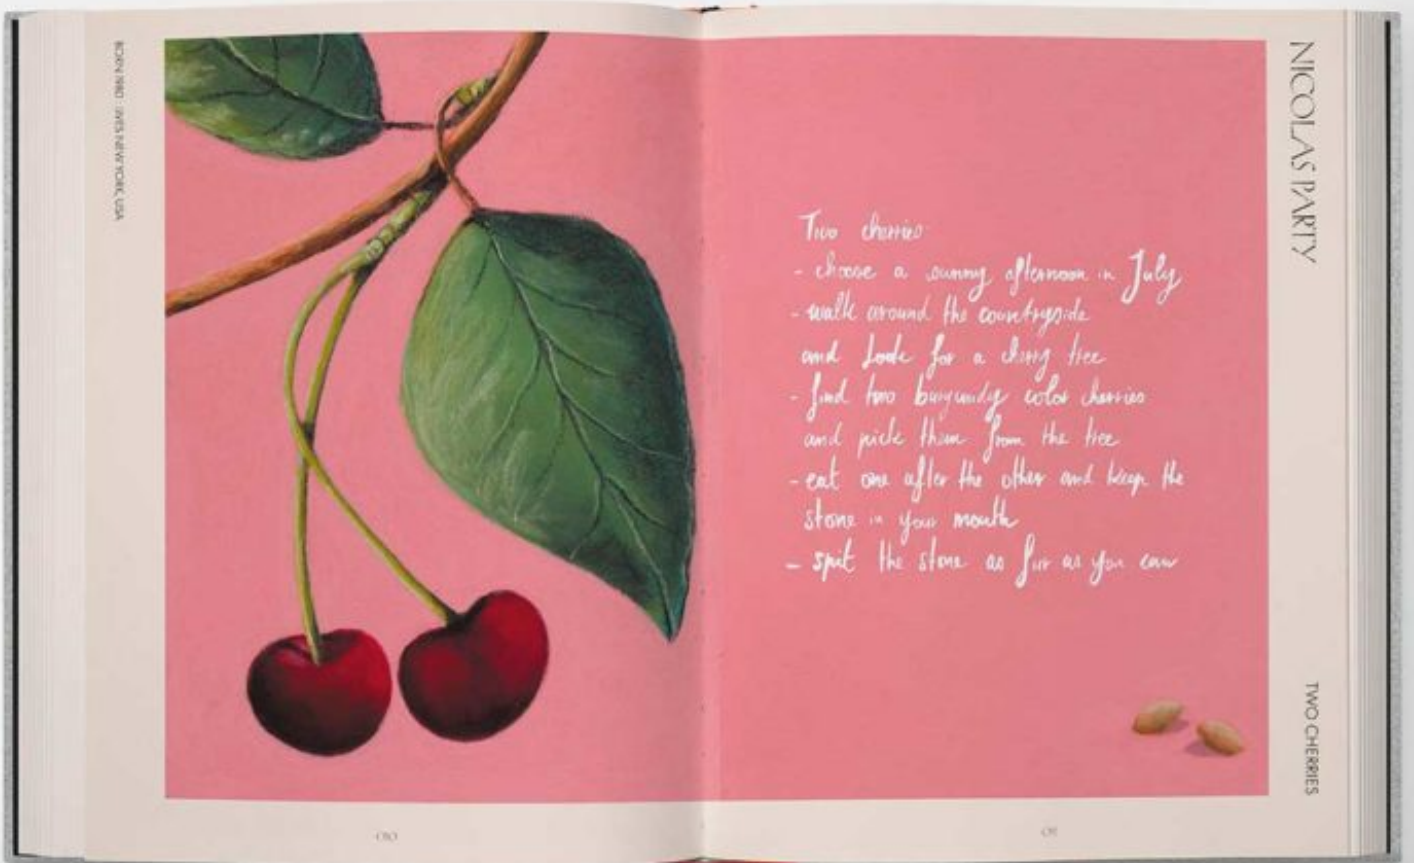 BORN 1980 · LIVES NEW YORK, USA
Two cherries
- choose a sunny afternoon in July
- walk around the countryside
and look for a cherry tree
- find two burgundy color cherries
and pick them from the tree
- eat one after the other and keep the
stone in your mouth
- spit the stone as far as you can
NICOLAS PARTY
TWO CHERRIES